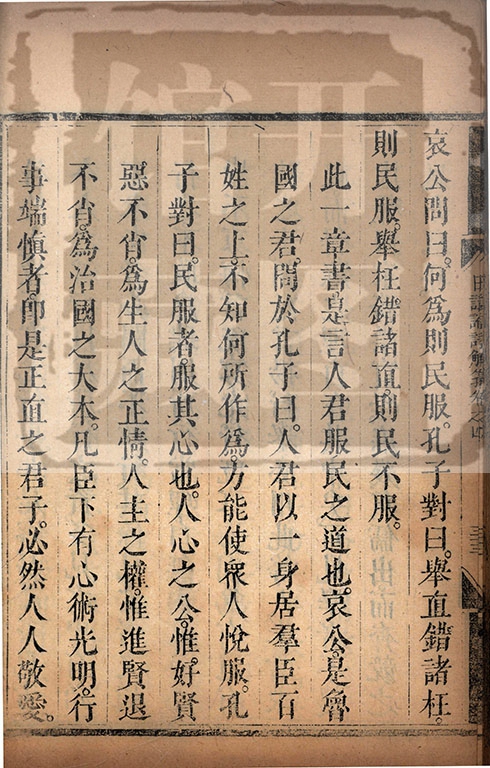 哀公問曰。何爲則民服。孔子對曰。舉直錯諸枉。
則民服。舉枉錯諸直。則民不服。
此一章書是言人君服民之道也。哀公。是魯
國之君。問於孔子曰。人君以一身居羣臣百
姓之上。不知何所作爲。方能使眾人悅服。孔
子對曰。民服者。服其心也。人心之公。惟好賢
惡不肖。爲生人之正情。人主之權。惟進賢退
不肖。爲治國之大本。凡臣下有心術光明。行
事端慎者。即是正直之君子。必然人人敬愛。